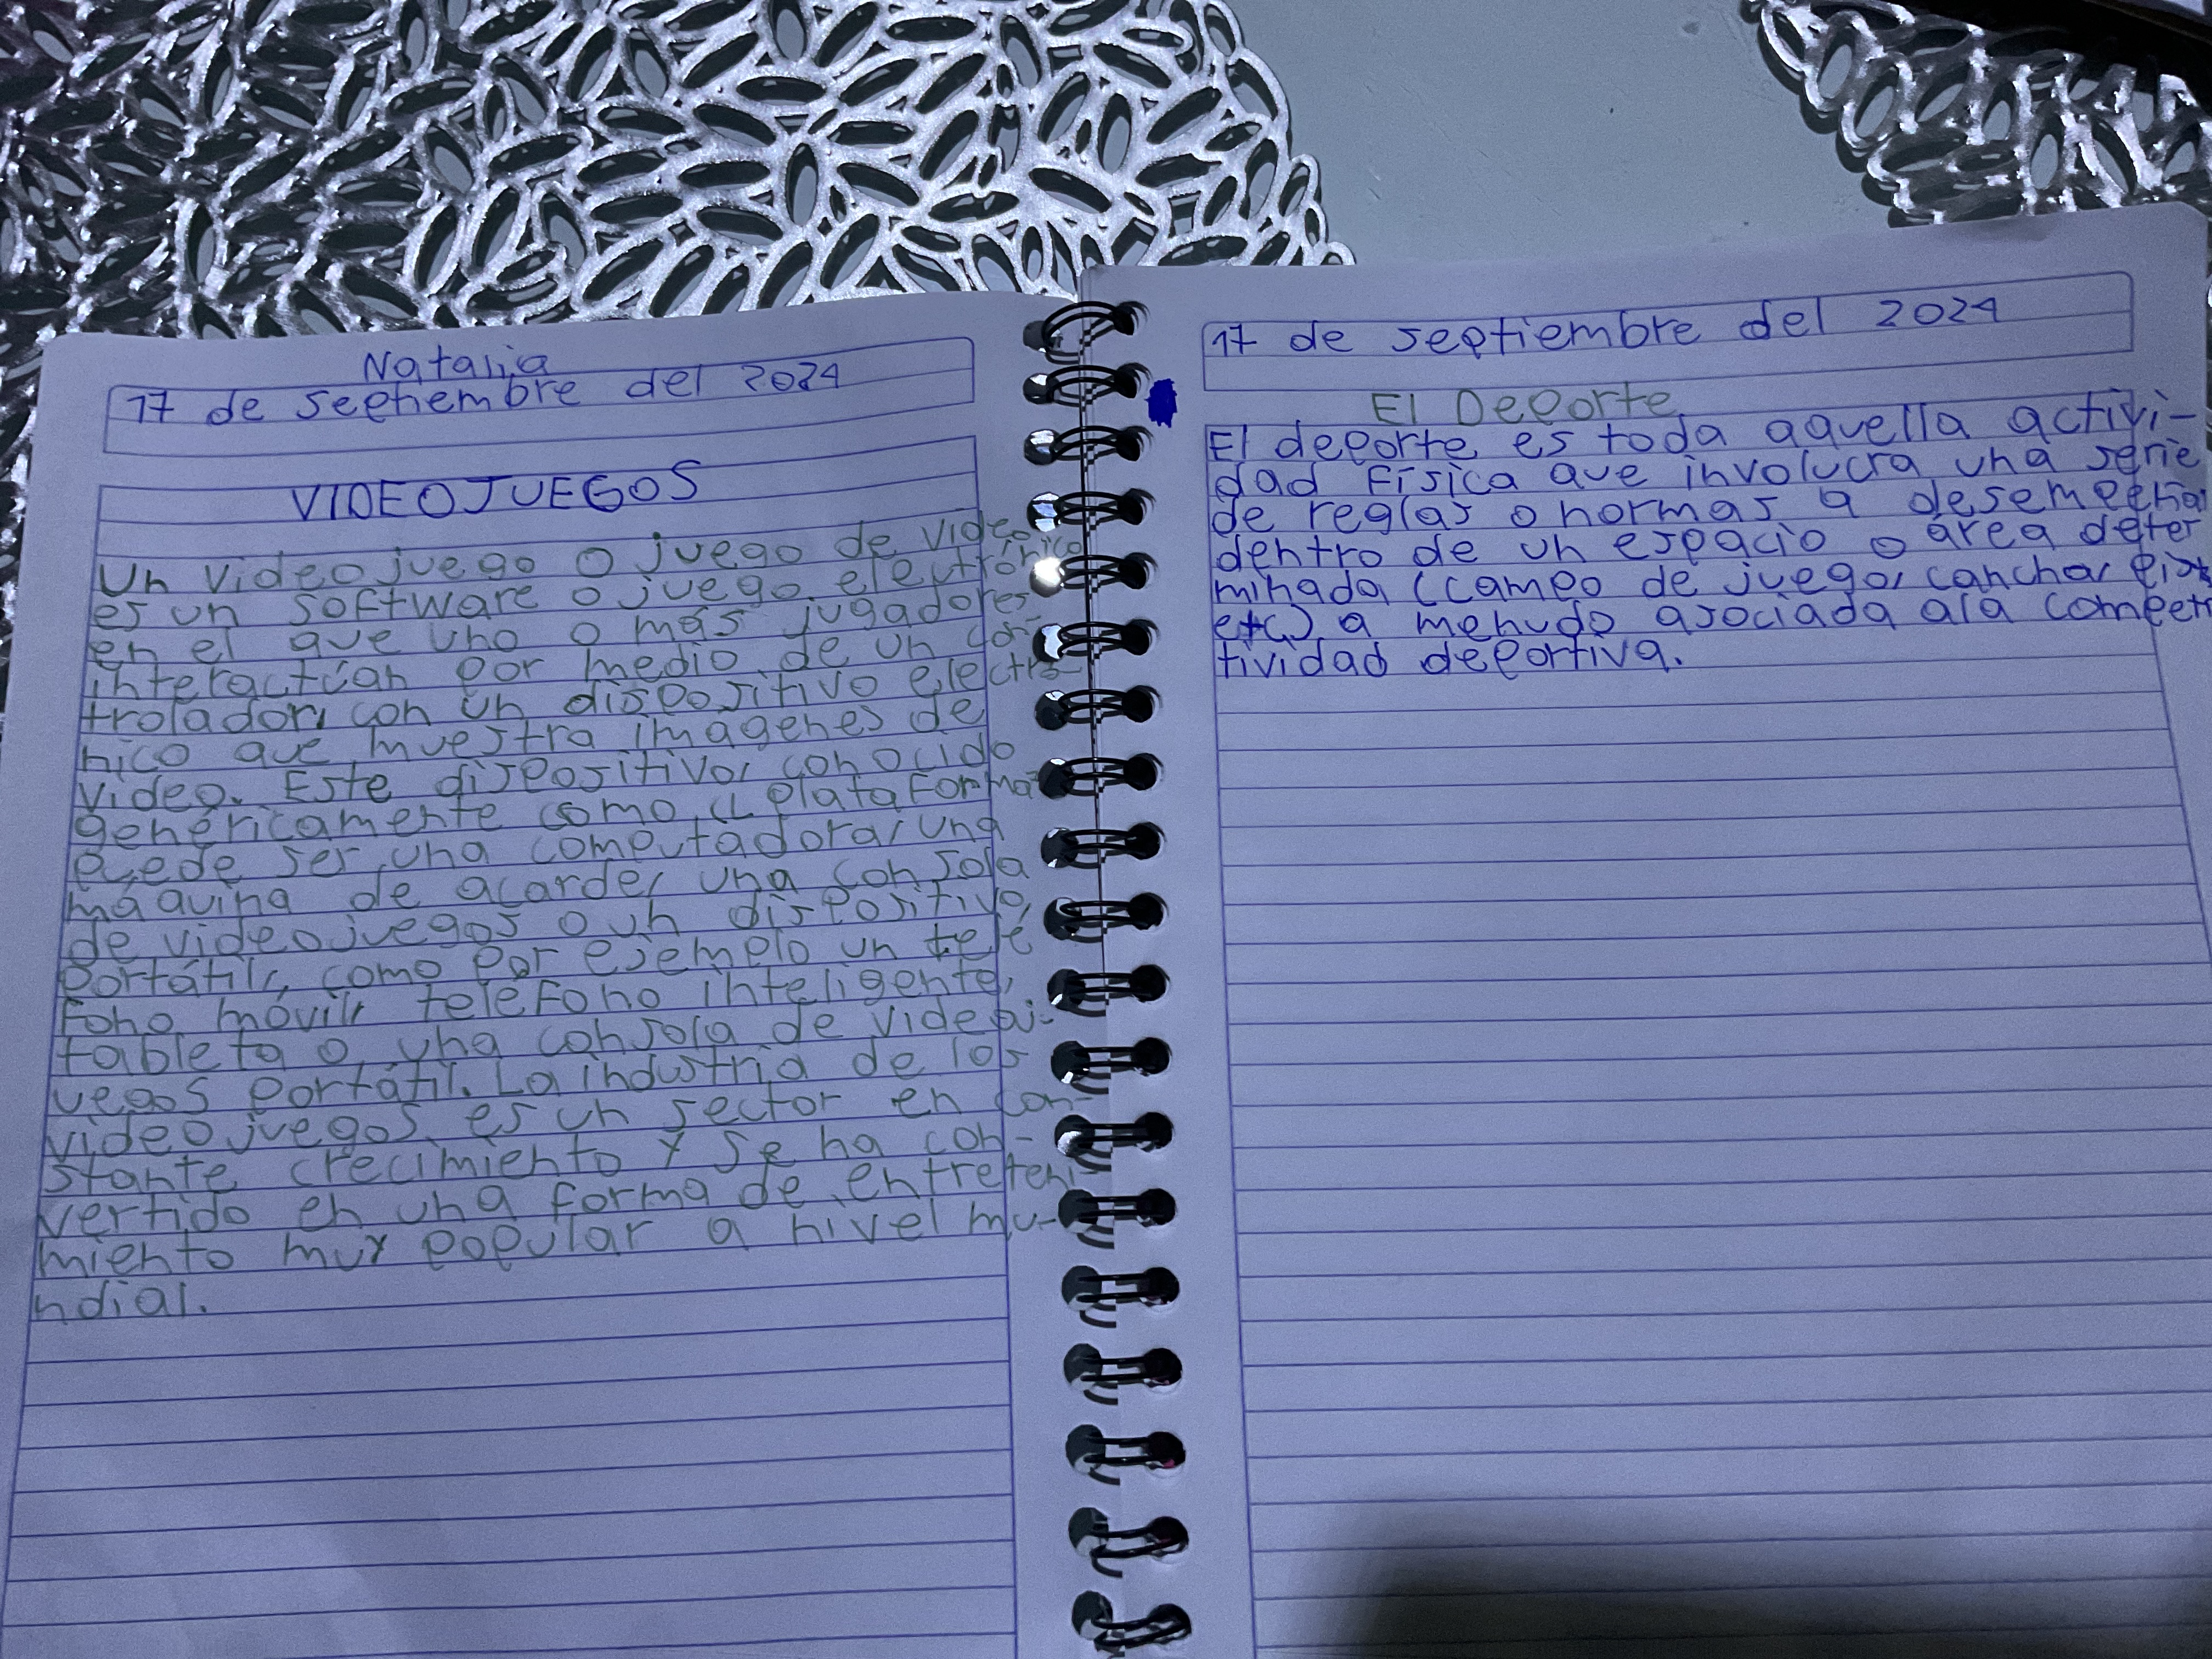 Natalia
17 de septiembre del 2024
VIDEOJUEGOS
Un videojuego o juego de video
es un software o juego electrónico
en el que uno o más jugadores
interactúan por medio de un con-
trolador, con un dispositivo electró-
nico que muestra imágenes de
video. Este dispositivo, conocido
genéricamente como "plataforma"
puede ser una computadora, una
máquina de acarde, una consola
de videojuegos o un dispositivo
portátil, como por ejemplo un telé
fono móvil, teléfono inteligente,
tableta o una consola de videoj-
uegos portátil. La industria de los
videojuegos es un sector en con-
stante crecimiento y se ha con-
vertido en una forma de entreteni-
miento muy popular a nivel mu-
ndial.
17 de septiembre del 2024
El Deporte
El deporte es toda aquella activi-
dad física que involucra una serie
de reglas o normas a desempeña
dentro de un espacio o área deter
minada (campo de juego, cancha,
etc.) a menudo asociada ala competi
tividad deportiva.